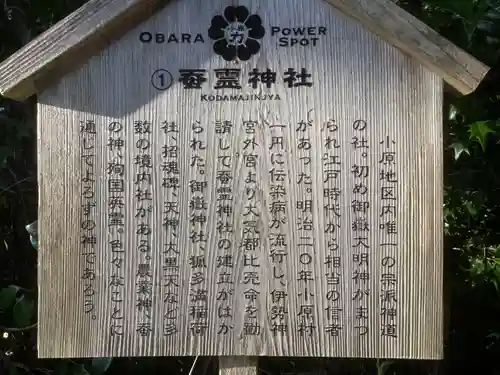 OBARA POWER SPOT
①蚕霊神社
KODAMAJINJYA
小原地区内唯一の宗派神道
の社。初め御嶽大明神がまつ
られ江戸時代から相当の信者
があった。明治二〇年小原村
一円に伝染病が流行し、伊勢神
宮外宮より大気都比売命を勧
請して蚕霊神社の建立がはか
られた。御嶽神社、狐多満稲荷
社、招魂碑、天神、大黒天など多
数の境内社がある。農業神、蚕
の神、殉国英霊。色々なことに
通してよろずの神であろう。